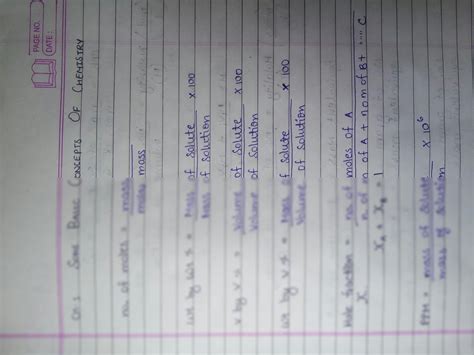 PAGE NO.
DATE:
Ch 1 Some Basic Concepts Of Chemistry
no. of moles = mass
molar mass
wt by wt % = Mass of solute × 100
Mass of solution
v by v % = Volume of solute × 100
Volume of solution
wt by v % = Mass of solute × 100
Volume of solution
Mole fraction = no. of moles of A
x n of m of A + n o m of B + .... C
xA + xB = 1
PPM = mass of solute × 10⁶
mass of solution